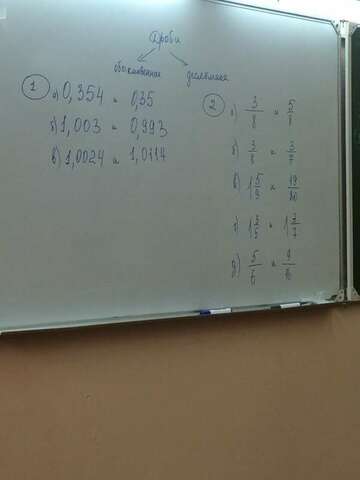 Дроби
обыкновенные
десятичные
1 а) 0,354 и 0,35
б) 1,003 и 0,993
в) 1,0024 и 1,0114
2 а) 3/8 и 5/8
б) 3/8 и 3/7
в) 1 5/9 и 19/20
г) 1 3/5 и 1 2/7
д) 5/6 и